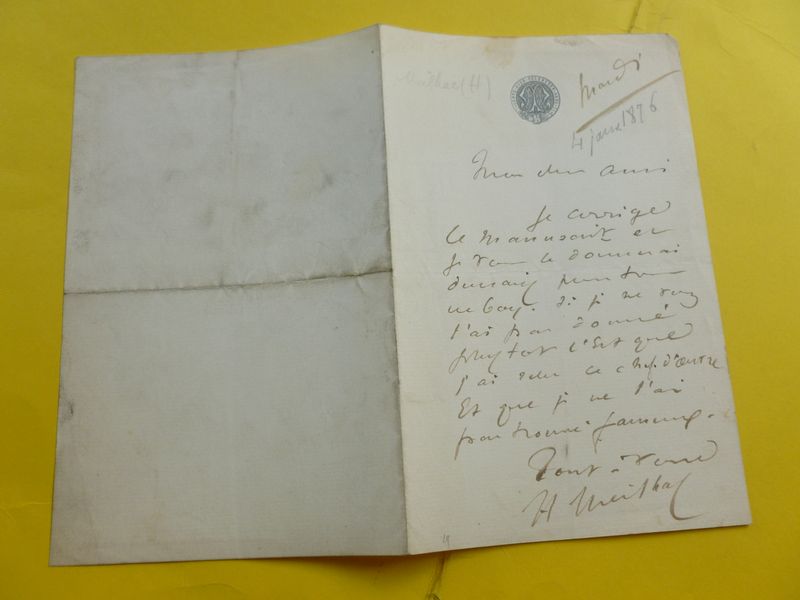 Meilhac (H)
Mardi
4 janv 1876
Mon cher ami
Je corrige
le manuscrit et
je vous le donnerai
demain
Si je ne vous
l'ai pas donné
plus tôt c'est que
j'ai relu ce chef d'œuvre
Et que je ne l'ai
pas trouvé fameux.
Tout à vous
H Meilhac